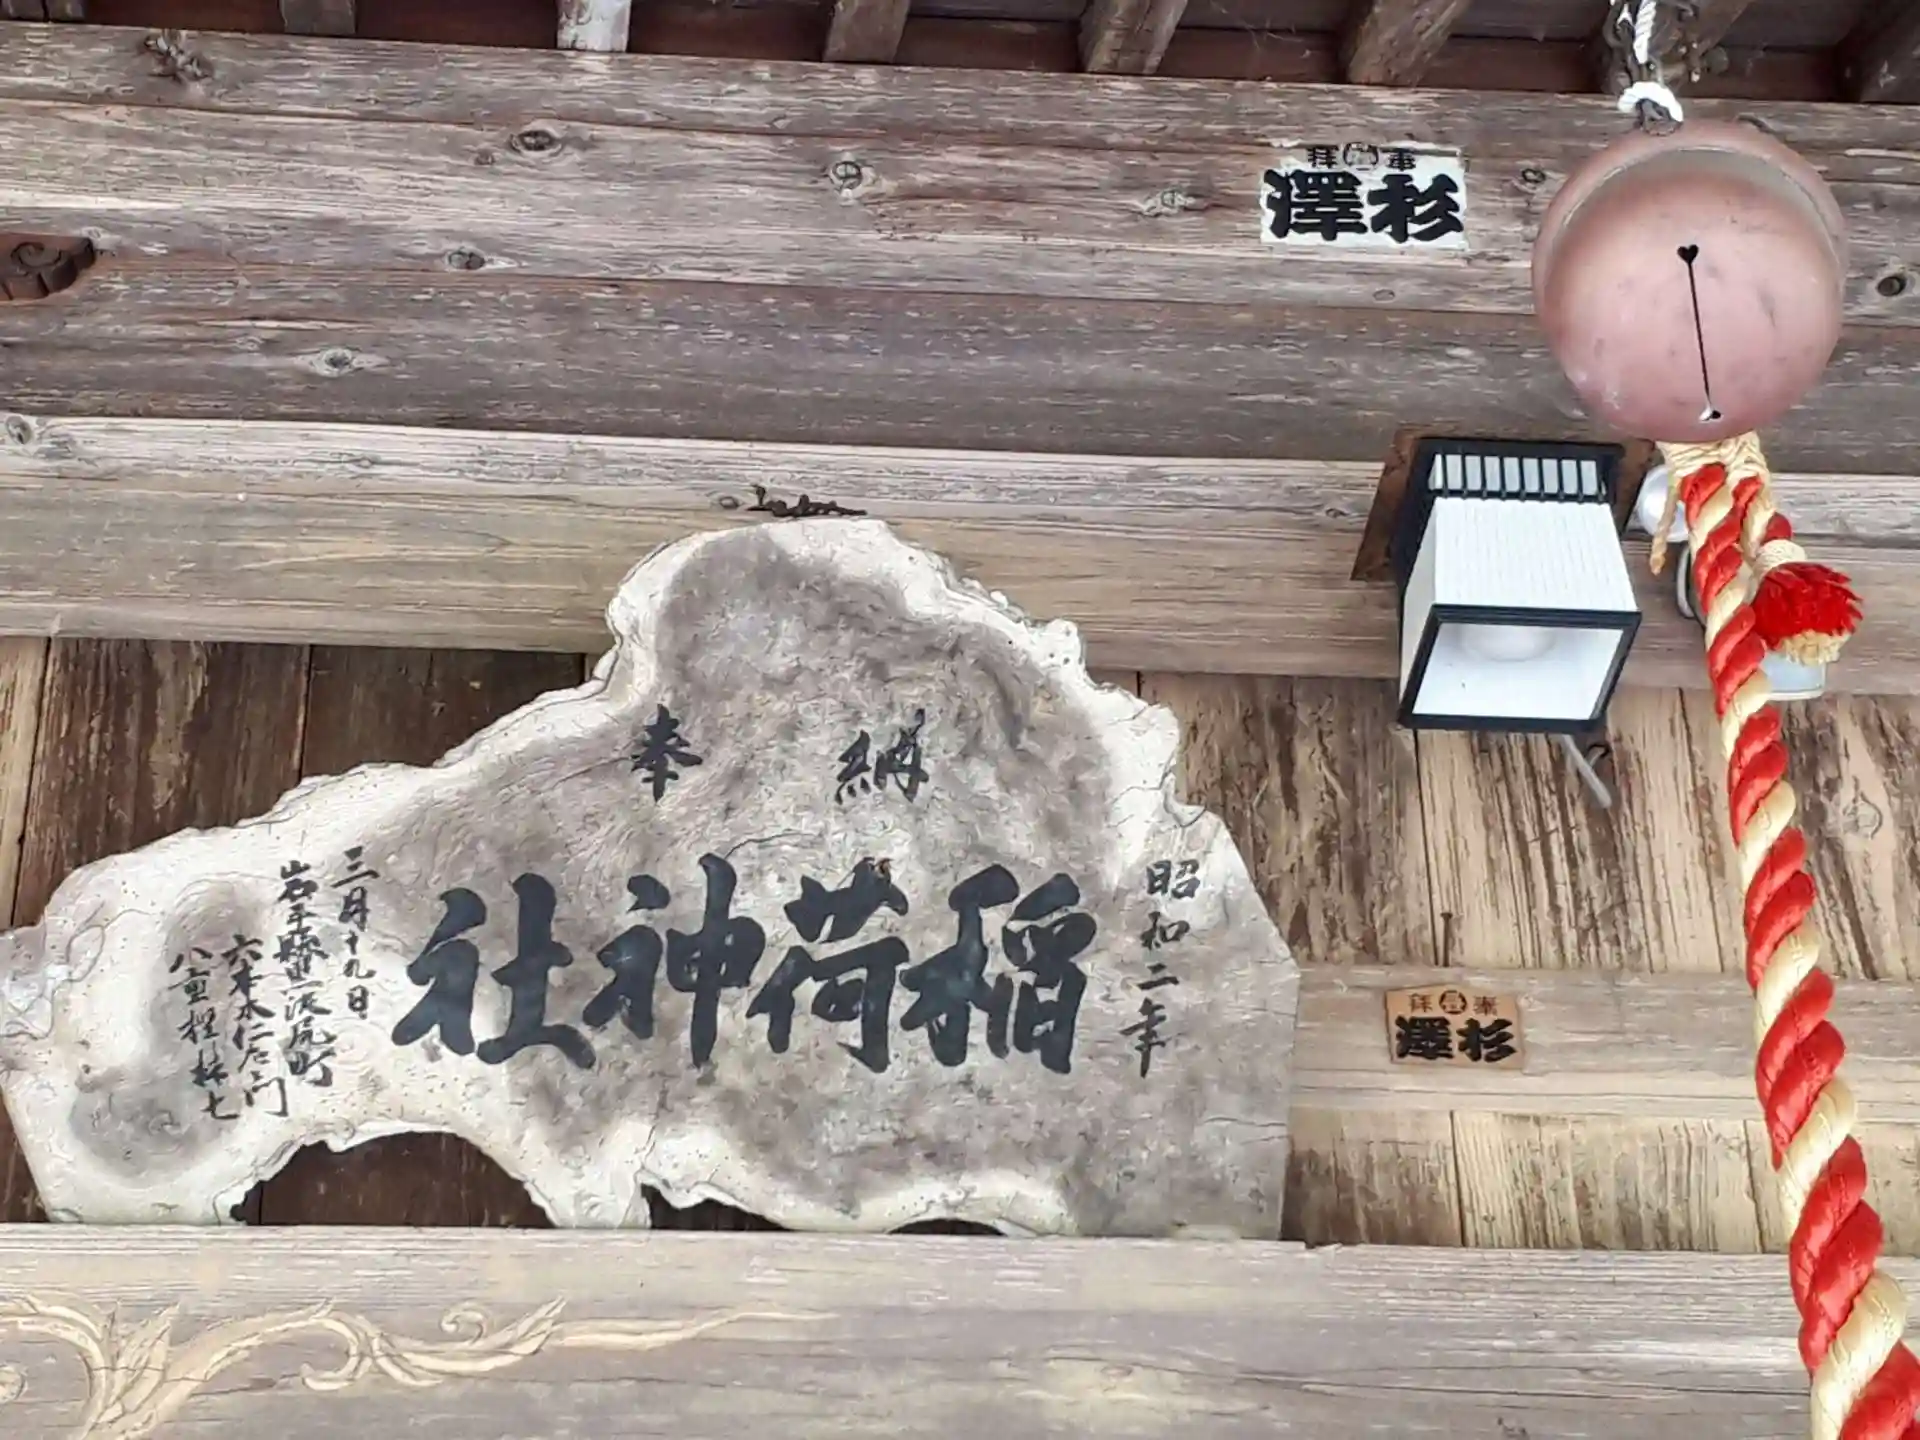 奉拝
杉澤
奉納
昭和二年
稲荷神社
三月十九日
岩手縣 尻町
六本木仁左エ門
八重樫 七
奉拝
杉澤